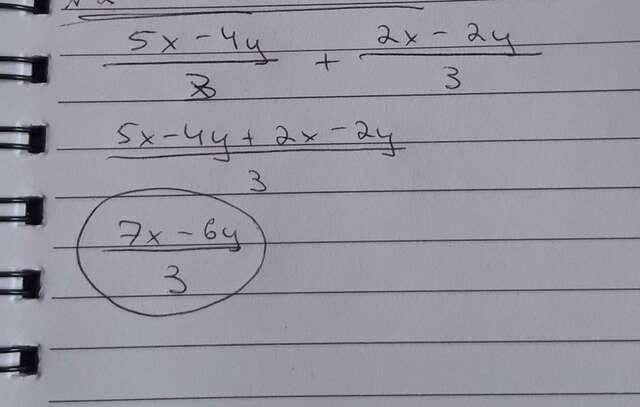 5x - 4y / 3 + 2x - 2y / 3
5x - 4y + 2x - 2y / 3
7x - 6y / 3